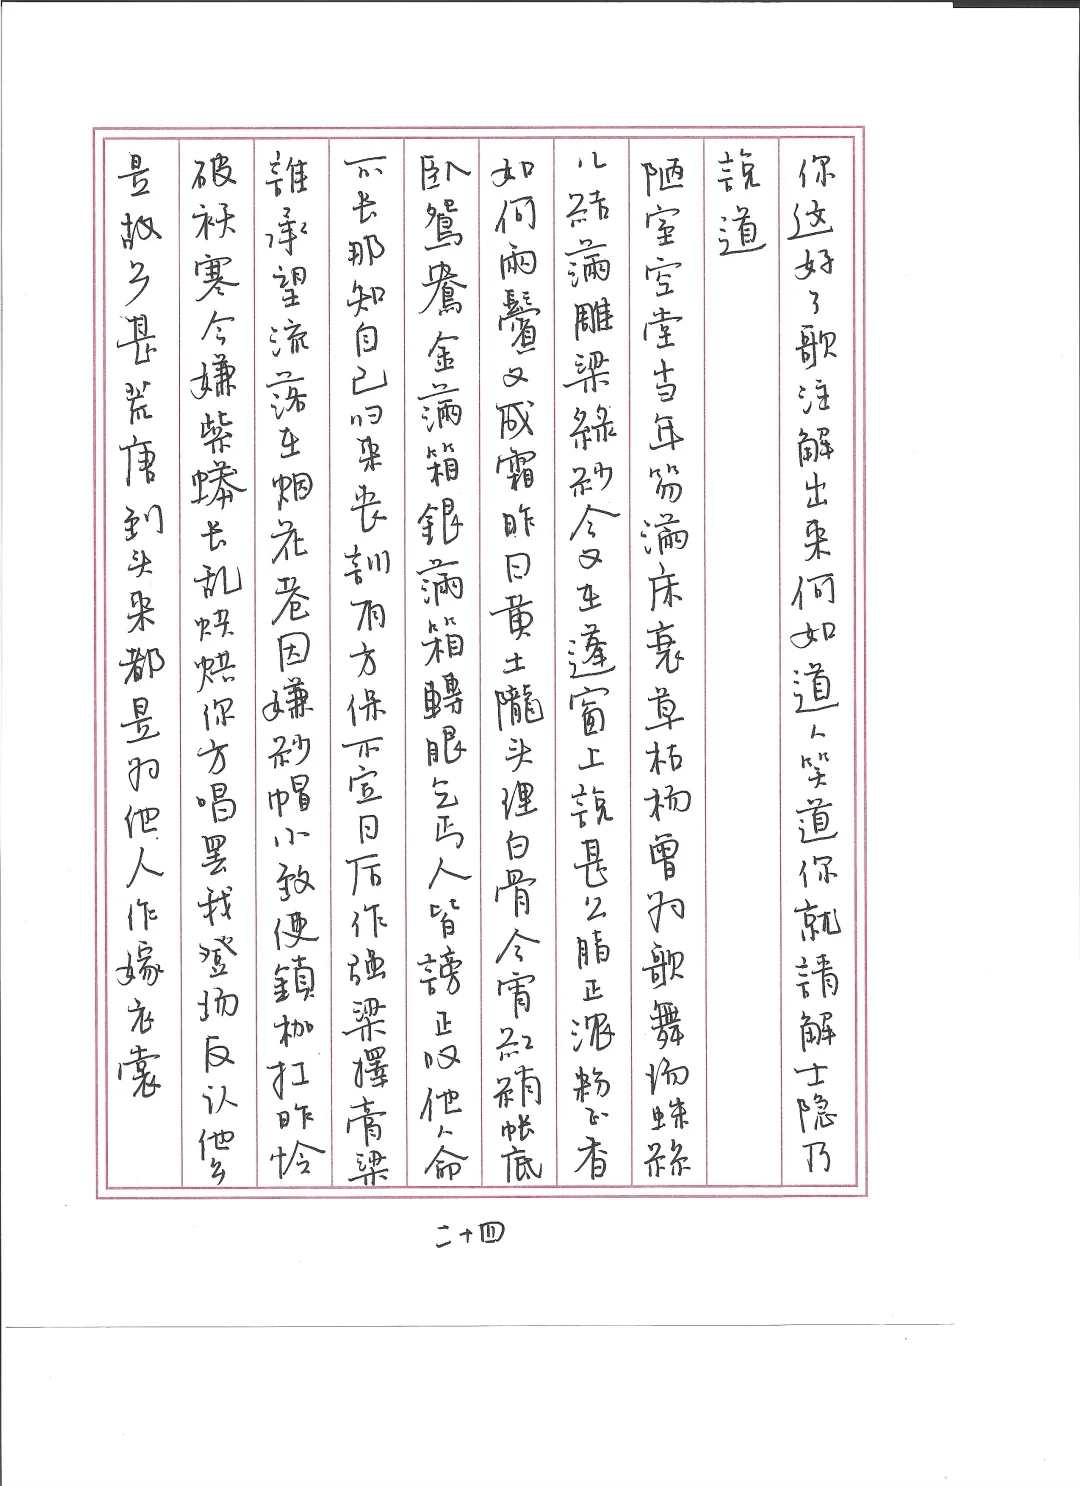 你这好了歌注解出来何如道人笑道你就請解士隐乃
說道
陋室空堂当年笏满床衰草枯杨曾为歌舞场蛛絲
儿結滿雕梁綠紗今又在蓬窗上說甚么脂正浓粉正香
如何兩鬢又成霜昨日黄土隴头埋白骨今宵红綃帐底
卧鴛鴦金滿箱銀滿箱轉眼乞丐人皆謗正叹他人命
不长那知自己归来丧訓有方保不定日后作强梁擇膏梁
誰承望流落在烟花巷因嫌紗帽小致使鎖枷扛昨怜
破袄寒今嫌紫蟒长乱烘烘你方唱罢我登场反认他乡
是故乡甚荒唐到头来都是为他人作嫁衣裳
二十四